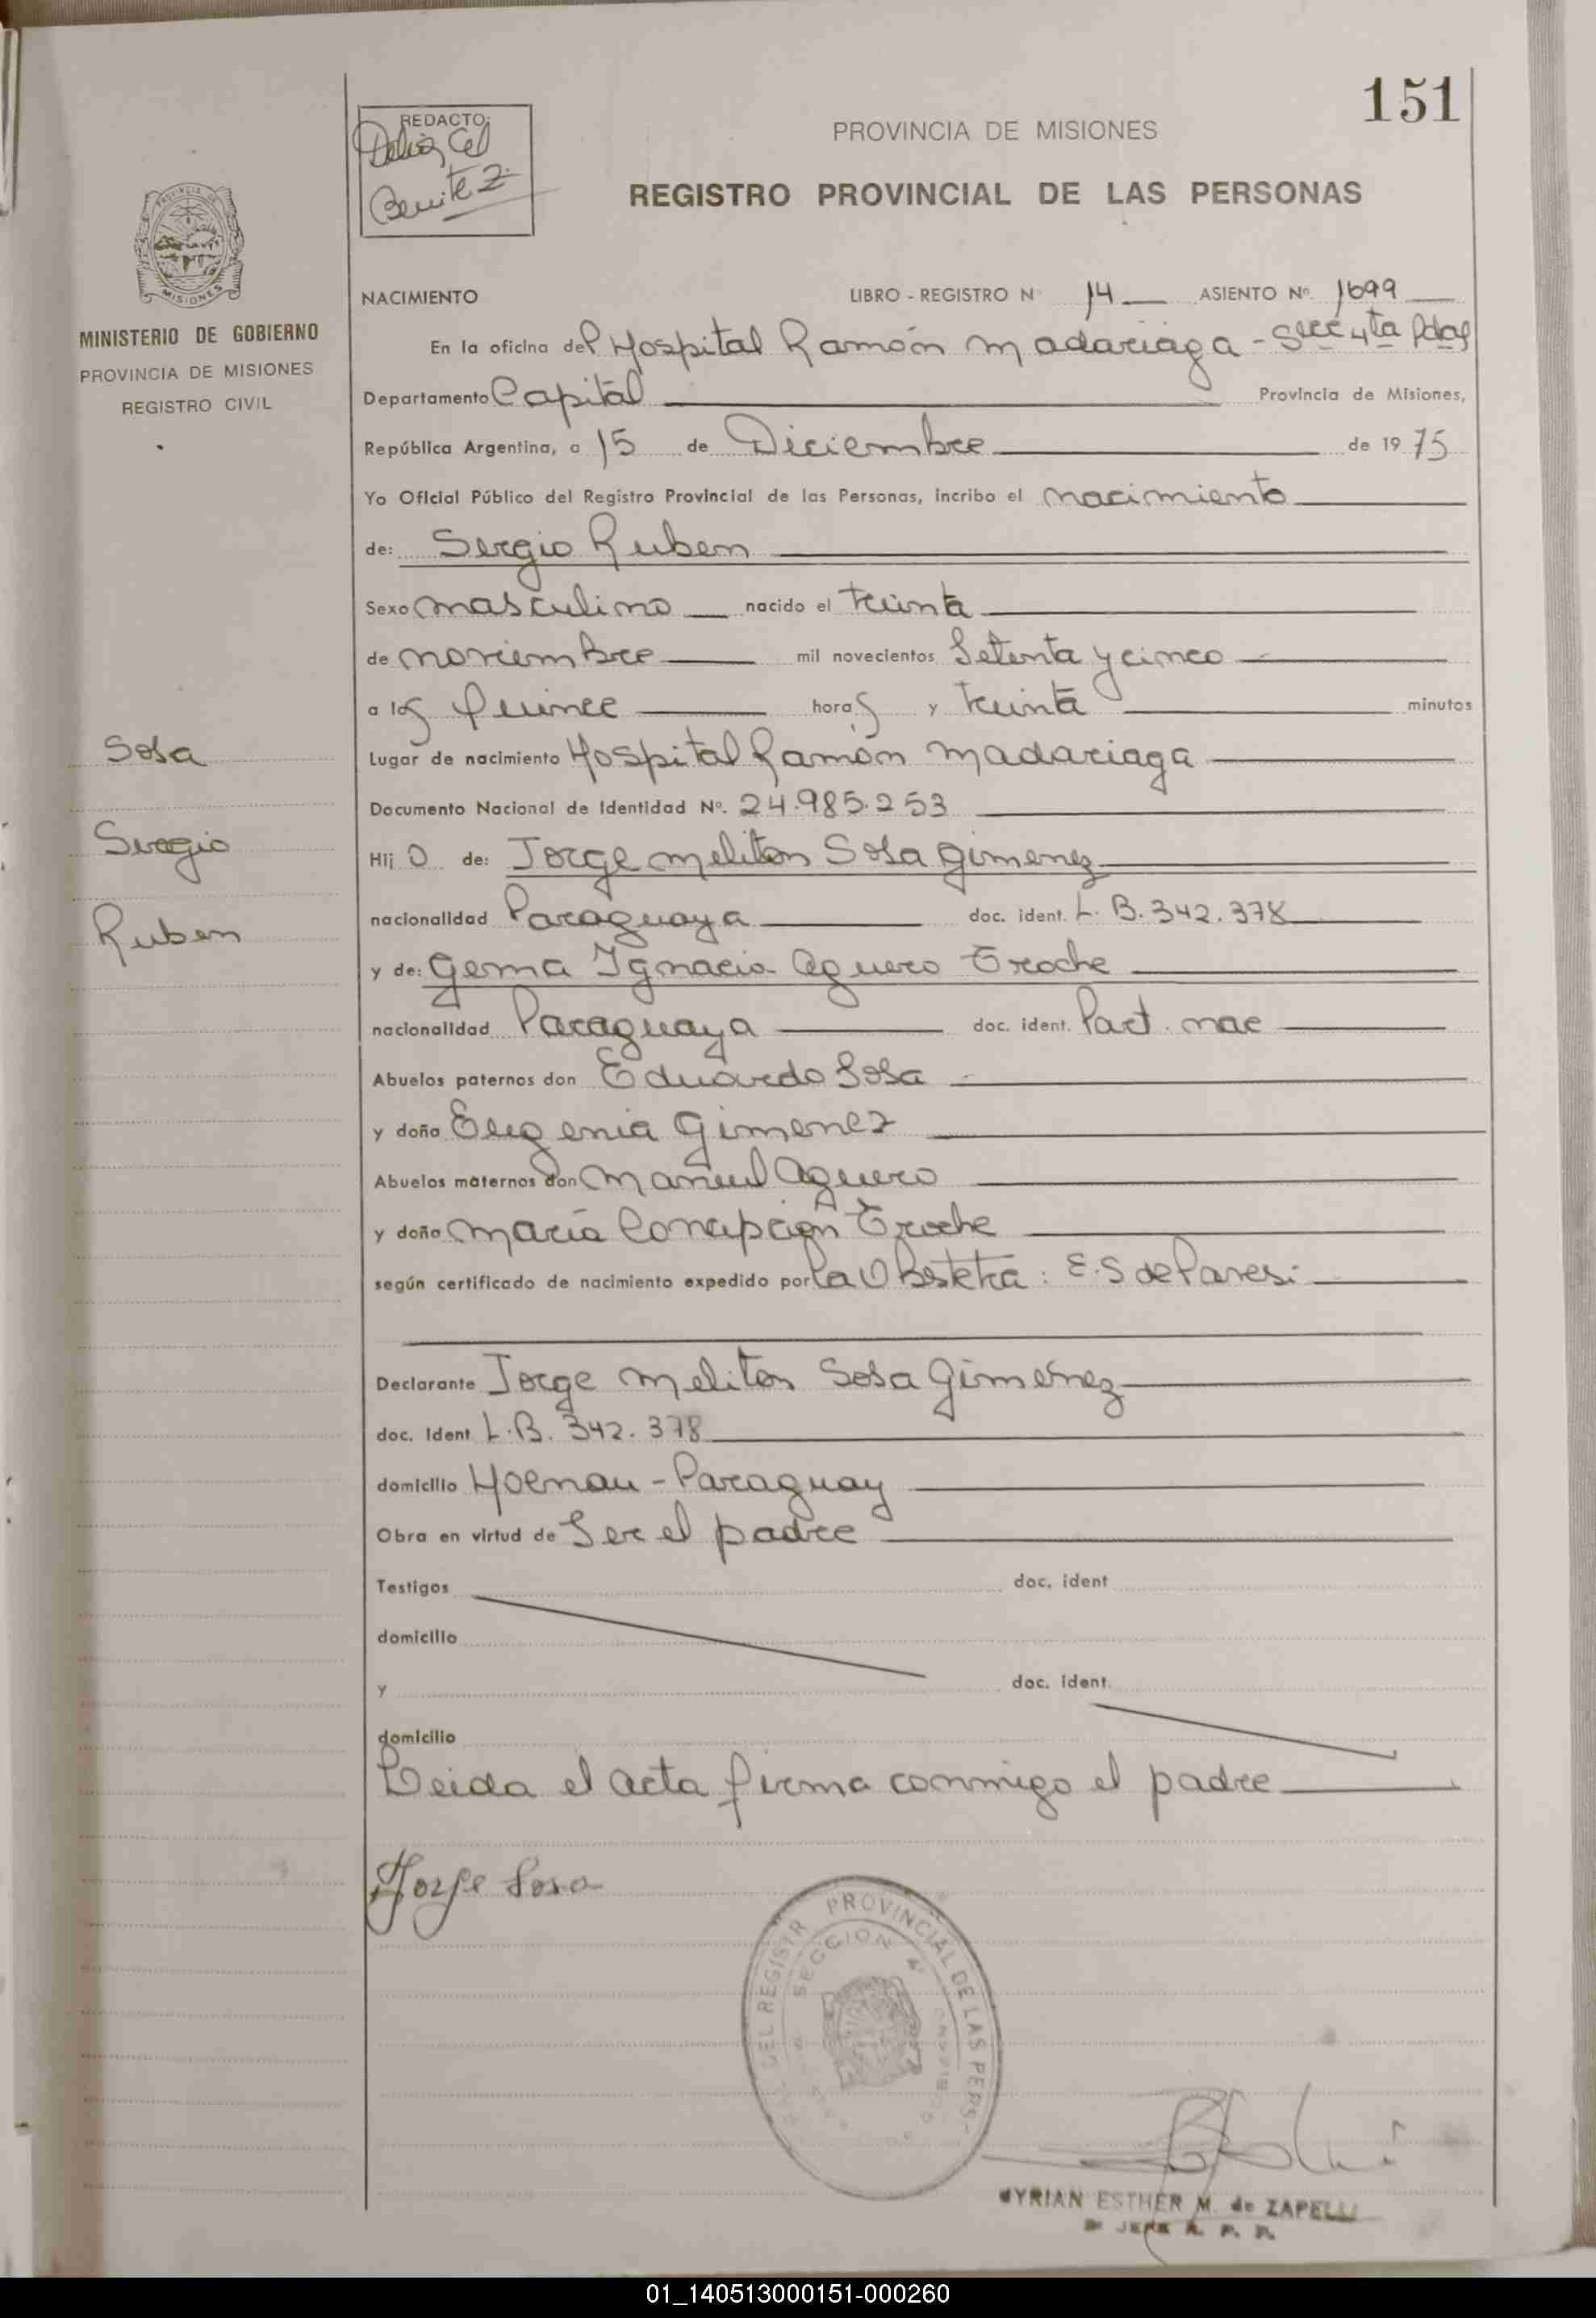 151
REDACTO:
Delia Cel
Benitez
PROVINCIA DE MISIONES
REGISTRO PROVINCIAL DE LAS PERSONAS
PROVINCIA DE
MISIONES
MINISTERIO DE GOBIERNO
PROVINCIA DE MISIONES
REGISTRO CIVIL
Sosa
Sergio
Ruben
NACIMIENTO LIBRO - REGISTRO N 14 ASIENTO Nº 1699
En la oficina del Hospital Ramón Madariaga - Secc 4ta Pdas
Departamento Capital Provincia de Misiones,
República Argentina, a 15 de Diciembre de 1975
Yo Oficial Público del Registro Provincial de las Personas, incribo el nacimiento
de: Sergio Ruben
Sexo masculino nacido el treinta
de noviembre mil novecientos Setenta y cinco
a las quince horas y treinta minutos
Lugar de nacimiento Hospital Ramón Madariaga
Documento Nacional de Identidad Nº. 24.985.253
Hij o de: Jorge Meliton Sosa Gimenez
nacionalidad Paraguaya doc. ident. L. B. 342.378
y de: Gema Ignacia Aguero Eroche
nacionalidad Paraguaya doc. ident. Part. nac
Abuelos paternos don Eduardo Sosa
y doña Eugenia Gimenez
Abuelos maternos don Manuel Aguero
y doña María Concepción Eroche
según certificado de nacimiento expedido por la Obstetra: E.S de Paresi
Declarante Jorge Meliton Sosa Giménez
doc. Ident L.B. 342.378
domicilio Hoenau - Paraguay
Obra en virtud de Ser el padre
Testigos doc. ident
domicilio
y doc. ident.
domicilio
Leida el acta firma conmigo el padre
Jorge Sosa
DEL REGISTR PROVINCIAL DE LAS PERS
SECCION 4ª
MYRIAN ESTHER M. de ZAPELLI
JEFE R. P. P.
01_140513000151-000260